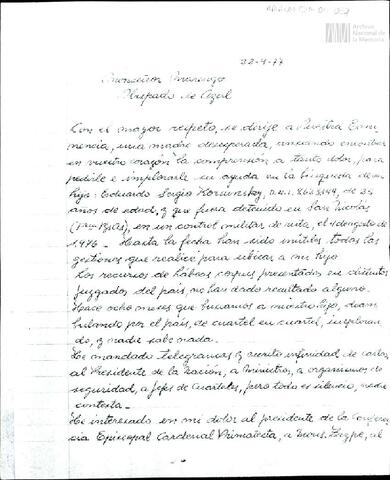 Archivo
Nacional de
la Memoria
22-4-77
Monseñor Marengo
Obispado de Azul
Con el mayor respeto, se dirige a Vuestra Emi-
nencia, una madre desesperada, ansiando encontrar
en vuestro corazón la comprensión a tanto dolor, para
pedirle e implorarle su ayuda en la búsqueda de mi
hijo: Eduardo Sergio D.N.I. de 25
años de edad, y que fuera detenido en San Nicolás
(Pcia Bs As), en un control militar de ruta, el 4 de agosto de
1976.- Hasta la fecha han sido inútiles todas las
gestiones que realicé para ubicar a mi hijo
Los recursos de hábeas corpus presentados en distintos
juzgados del país, no han dado resultado alguno.
Hace ocho meses que buscamos a nuestro hijo, deam
bulando por el país, de cuartel en cuartel, imploran
do, y nadie sabe nada.
He mandado telegramas y escrito infinidad de cartas,
al Presidente de la Nación, a Ministros, a organismos de
seguridad, a Jefes de Cuarteles, pero todo es silencio, nadie
contesta.-
He interesado en mi dolor al presidente de la Conferen
cia Episcopal Cardenal Primatesta, a Mons. Zazpe, al